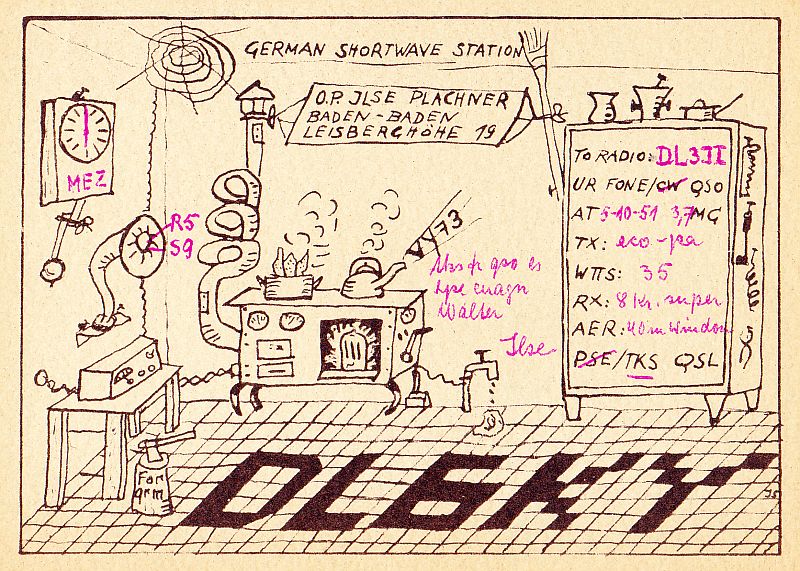 GERMAN SHORTWAVE STATION
O.P. ILSE PLACHNER
BADEN-BADEN
LEISBERGHÖHE 19
MEZ
R5
S9
VY 73
Mks fr qso es
hpe cuagn
Walter
Ilse
TO RADIO: DL3JI
UR FONE/CW QSO
AT 5-10-51 3,7 MC
TX: eco-pa
WTTS: 35
RX: 8 Kr. super
AER: 40m Windom
PSE/TKS QSL
For
qrm
DL6KY
JS